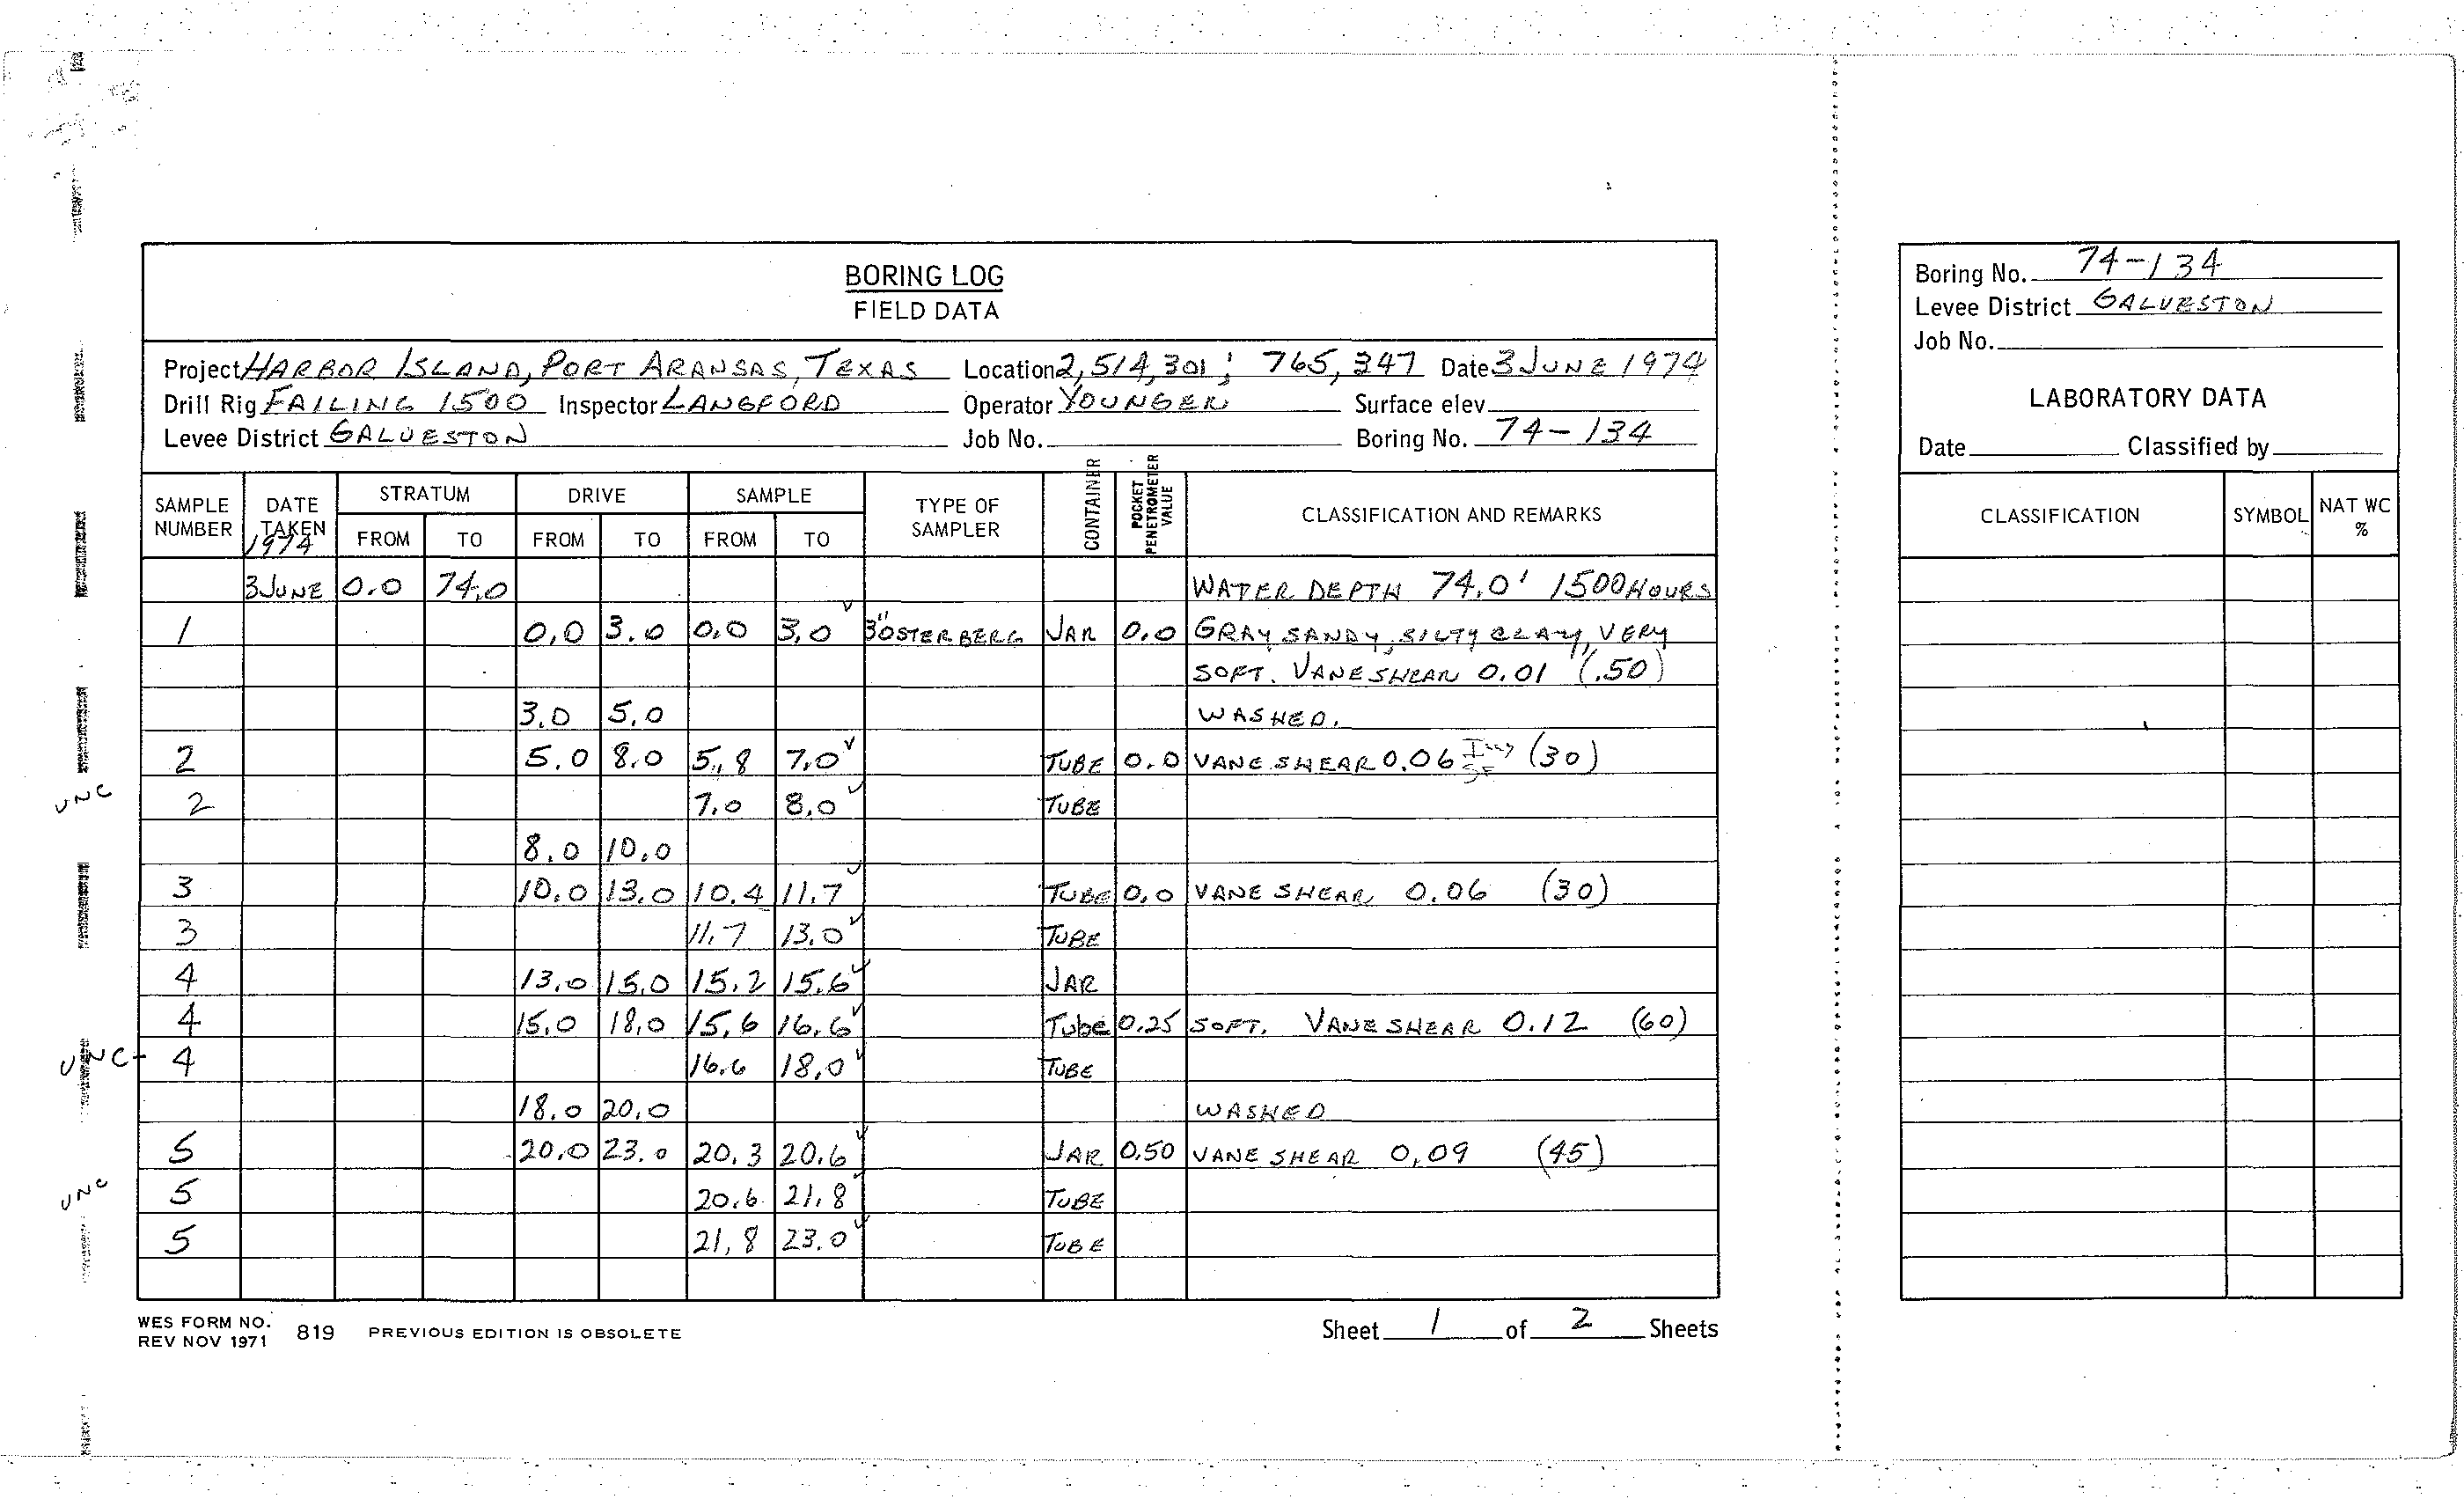 BORING LOG
FIELD DATA
Project HARBOR ISLAND, PORT ARANSAS, TEXAS Location 2,514,301; 765,347 Date 3 JUNE 1974
Drill Rig FAILING 1500 Inspector LANGFORD Operator YOUNGER Surface elev.
Levee District GALVESTON Job No. Boring No. 74-134
SAMPLE NUMBER DATE TAKEN 1974 STRATUM FROM TO DRIVE FROM TO SAMPLE FROM TO TYPE OF SAMPLER CONTAINER POCKET PENETROMETER VALUE CLASSIFICATION AND REMARKS
3 JUNE 0.0 74.0 WATER DEPTH 74.0' 1500 HOURS
1 0.0 3.0 0.0 3.0 3" OSTERBERG JAR 0.0 GRAY SANDY, SILTY CLAY, VERY
SOFT. VANE SHEAR 0.01 (.50)
3.0 5.0 WASHED.
2 5.0 8.0 5.8 7.0 TUBE 0.0 VANE SHEAR 0.06 (30)
UNC 2 7.0 8.0 TUBE
8.0 10.0
3 10.0 13.0 10.4 11.7 TUBE 0.0 VANE SHEAR 0.06 (30)
3 11.7 13.0 TUBE
4 13.0 15.0 15.2 15.6 JAR
4 15.0 18.0 15.6 16.6 Tube 0.25 SOFT. VANE SHEAR 0.12 (60)
UNC 4 16.6 18.0 TUBE
18.0 20.0 WASHED
5 20.0 23.0 20.3 20.6 JAR 0.50 VANE SHEAR 0.09 (45)
UNC 5 20.6 21.8 TUBE
5 21.8 23.0 TUBE
WES FORM NO. 819 PREVIOUS EDITION IS OBSOLETE
REV NOV 1971
Sheet 1 of 2 Sheets
Boring No. 74-134
Levee District GALVESTON
Job No.
LABORATORY DATA
Date Classified by
CLASSIFICATION SYMBOL NAT WC %